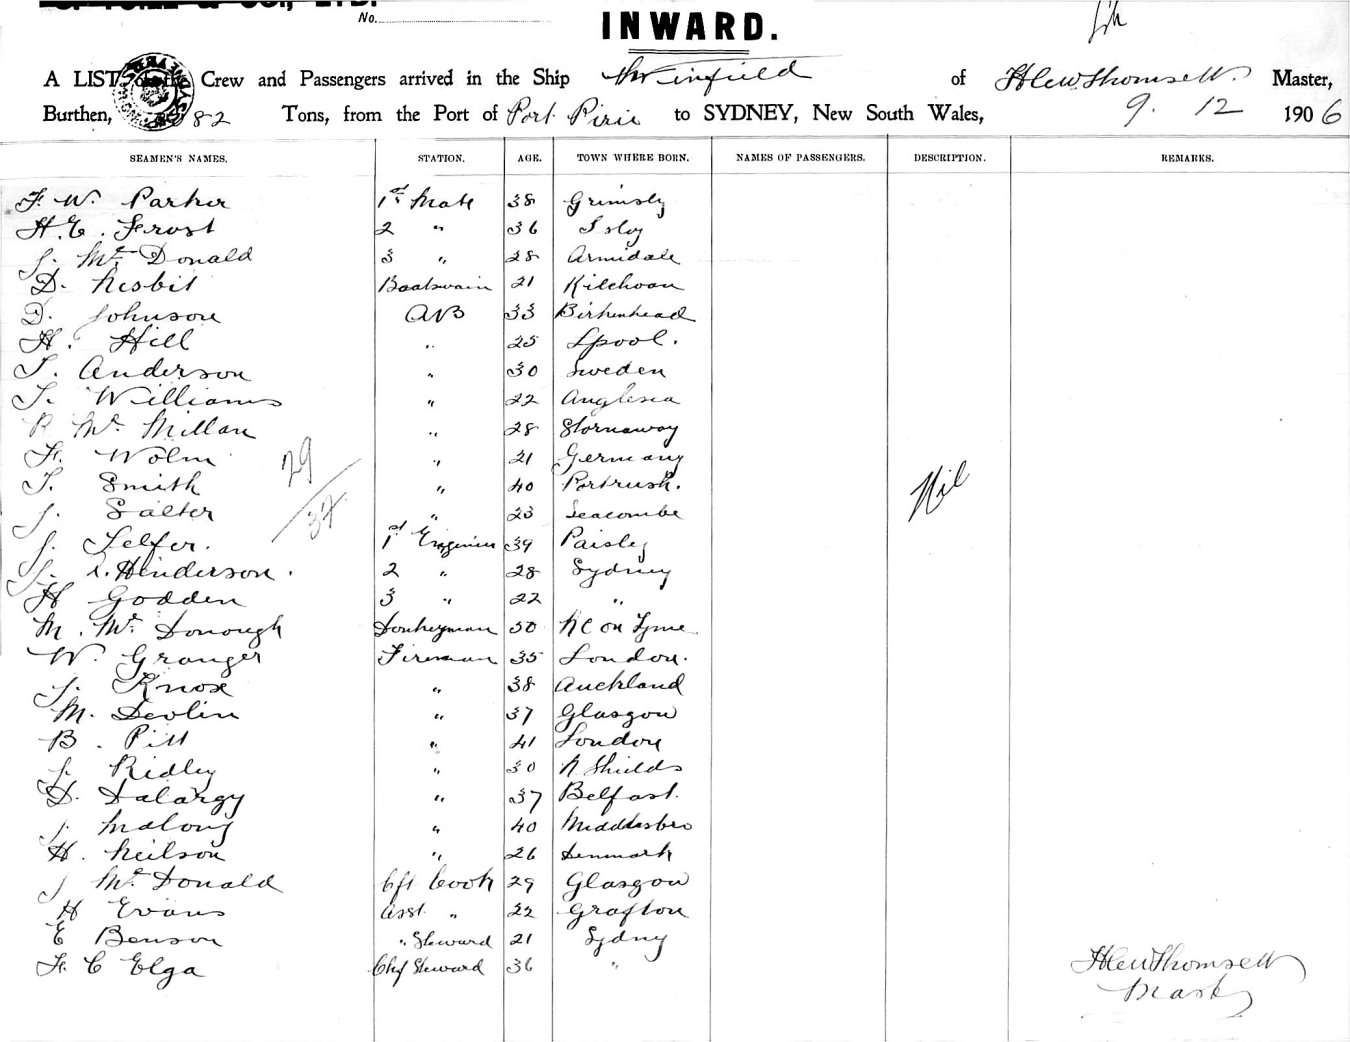 No.
INWARD.
A LIST of the Crew and Passengers arrived in the Ship Winfield of H Lew Thomsett Master,
Burthen, 82 Tons, from the Port of Port Pirie to SYDNEY, New South Wales, 9. 12 1906
SEAMEN'S NAMES. STATION. AGE. TOWN WHERE BORN. NAMES OF PASSENGERS. DESCRIPTION. REMARKS.
F. W. Parker 1st Mate 38 Grimsby
H. E. Frost 2 " 36 Islay
J. Mc Donald 3 " 28 Armidale
D. Nesbit Boatswain 21 Kilchoan
D. Johnson AB 33 Birkenhead
H. Hill " 25 Lpool.
T. Anderson " 30 Sweden
T. Williams " 22 Anglesea
R Mc Millan " 28 Stornoway
H. Wolm " 21 Germany
29
T. Smith " 40 Portrush.
Nil
J. Salter " 23 Seacombe
37
J. Telfer. 1st Engineer 39 Paisley
J. Henderson. 2 " 28 Sydney
H Godden 3 " 22 "
M. Mc Donough Donkeyman 50 N C on Tyne
W. Granger Fireman 35 London.
J. Knox " 38 Auckland
M. Devlin " 37 Glasgow
B. Pitt " 41 London
J. Ridley " 30 N Shields
D. Dalargy " 37 Belfast.
J. Malony " 40 Middlesbro
H. Neilson " 26 Denmark
J Mc Donald Cft Cook 29 Glasgow
H Evans Asst " 22 Grafton
E Benson " Steward 21 Sydney
F. C Elga Chf Steward 36 "
H Lew Thomsett
Master